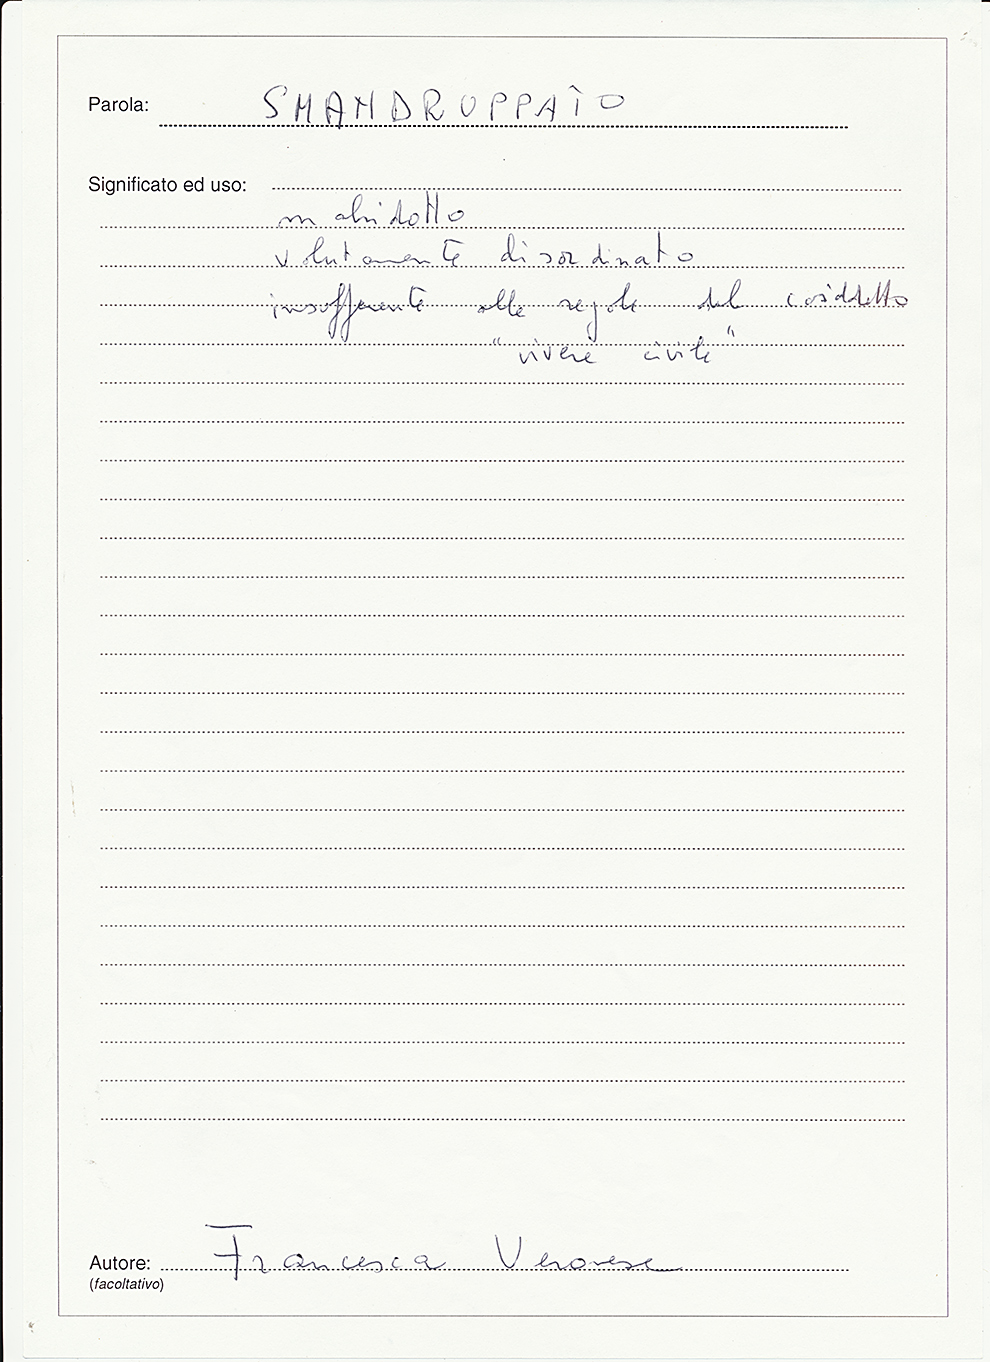 Parola: SMANDRUPPATO
Significato ed uso:
malridotto
volutamente disordinato
insofferente alle regole del cosiddetto
"vivere civile"
Autore: Francesca Veronese
(facoltativo)